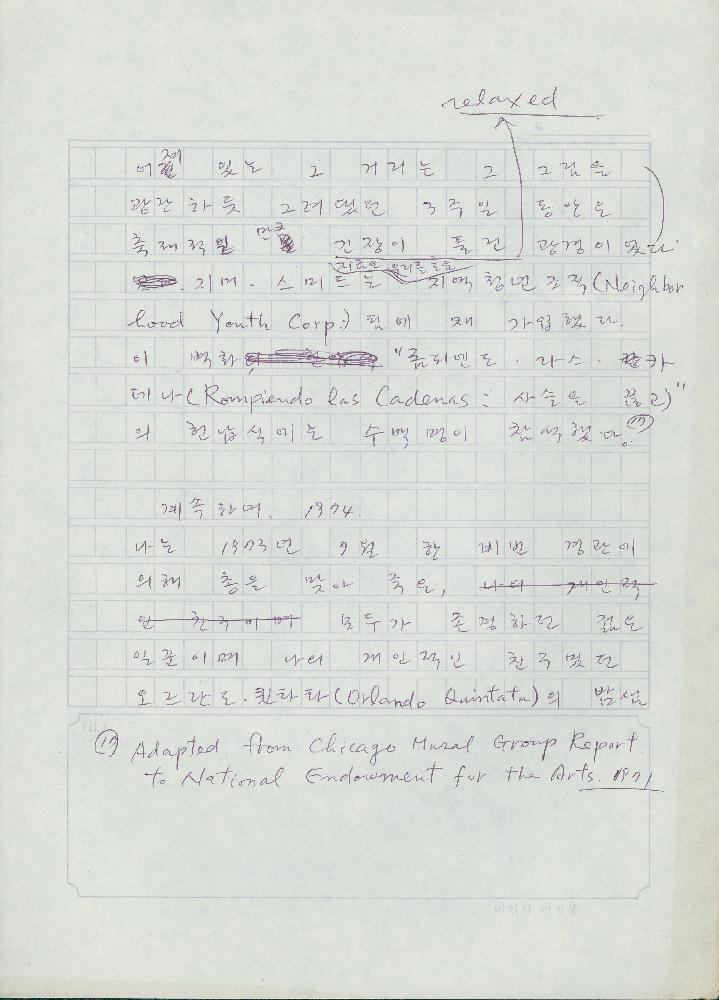 relaxed
있는 그 거리는 그 그림을
관란하듯 그려댔던 3주일 동안은
축제적일 만큼 긴장이 풀린 광경이었다.
지미. 스미드는 지역 청년 조직(Neighbor
hood Youth Corp.) 팀에 재 가입했다.
이 벽화 "롬피엔도. 라스. 카
데나(Rompiendo las Cadenas: 사슬을 끊고)"
의 헌납식에는 수백 명이 참석했다. ⑰
계속하며, 1974.
나는 1973년 9월 한 비번 경관에
의해 총을 맞아 죽은, 나의 개인적
인 친구이며 모두가 존경하던 젊은
일꾼이며 나의 개인적인 친구였던
오르란도. 퀸타타(Orlando Quintata)의
⑰ Adapted from Chicago Mural Group Report
to National Endowment for the Arts. 1971
미진사 편집부